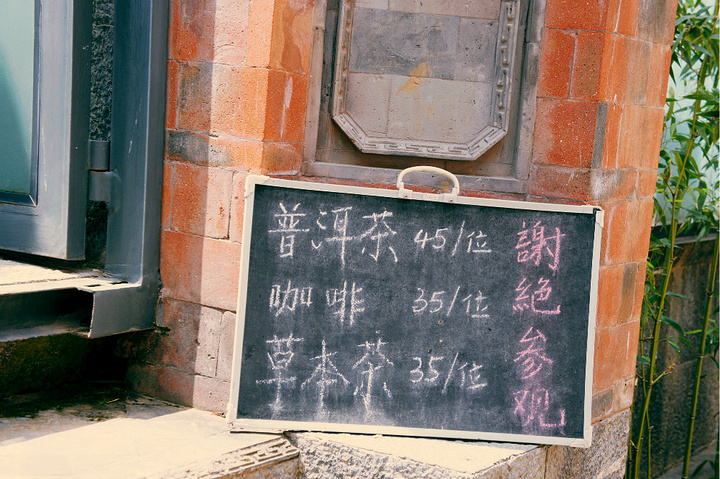 普洱茶 45/位
咖啡 35/位
草本茶 35/位
謝絕参观